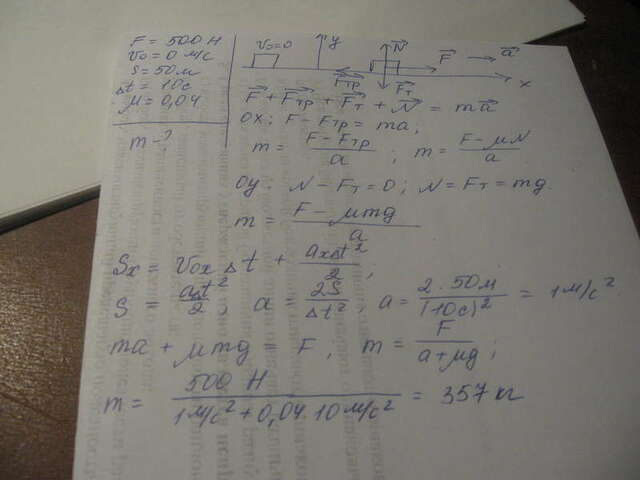 F = 500 Н
v₀ = 0 м/с
S = 50м
Δt = 10с
μ = 0,04
m - ?
v₀=0 y N⃗ F⃗ → a⃗
F⃗тр F⃗т x
F⃗ + F⃗тр + F⃗т + N⃗ = ma⃗
OX: F - Fтр = ma;
m = (F - Fтр)/a ; m = (F - μN)/a
Оy: N - Fт = 0; N = Fт = mg.
m = (F - μmg)/a
Sx = v₀x Δt + axΔt²/2;
S = aΔt²/2; a = 2S/Δt², a = 2·50м/(10с)² = 1м/с²
ma + μmg = F; m = F/(a+μg);
m = 500 Н/(1м/с² + 0,04 10м/с²) = 357 кг